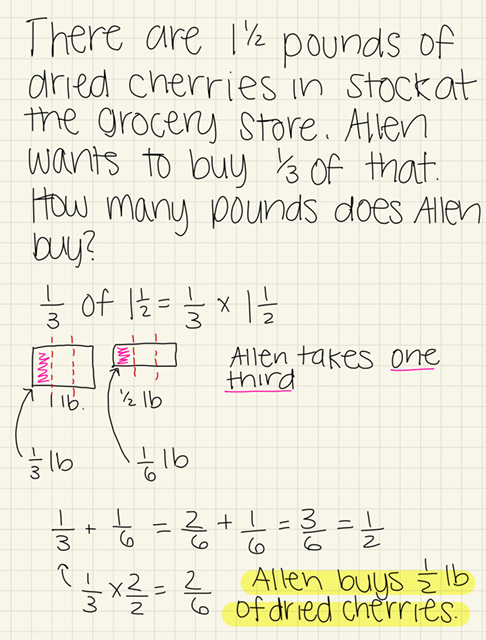 There are 1 1/2 pounds of
dried cherries in stock at
the grocery store. Allen
wants to buy 1/3 of that.
How many pounds does Allen
buy?
1/3 of 1 1/2 = 1/3 × 1 1/2
Allen takes one
third
1 lb.
1/2 lb
1/3 lb
1/6 lb
1/3 + 1/6 = 2/6 + 1/6 = 3/6 = 1/2
1/3 × 2/2 = 2/6
Allen buys 1/2 lb
of dried cherries.